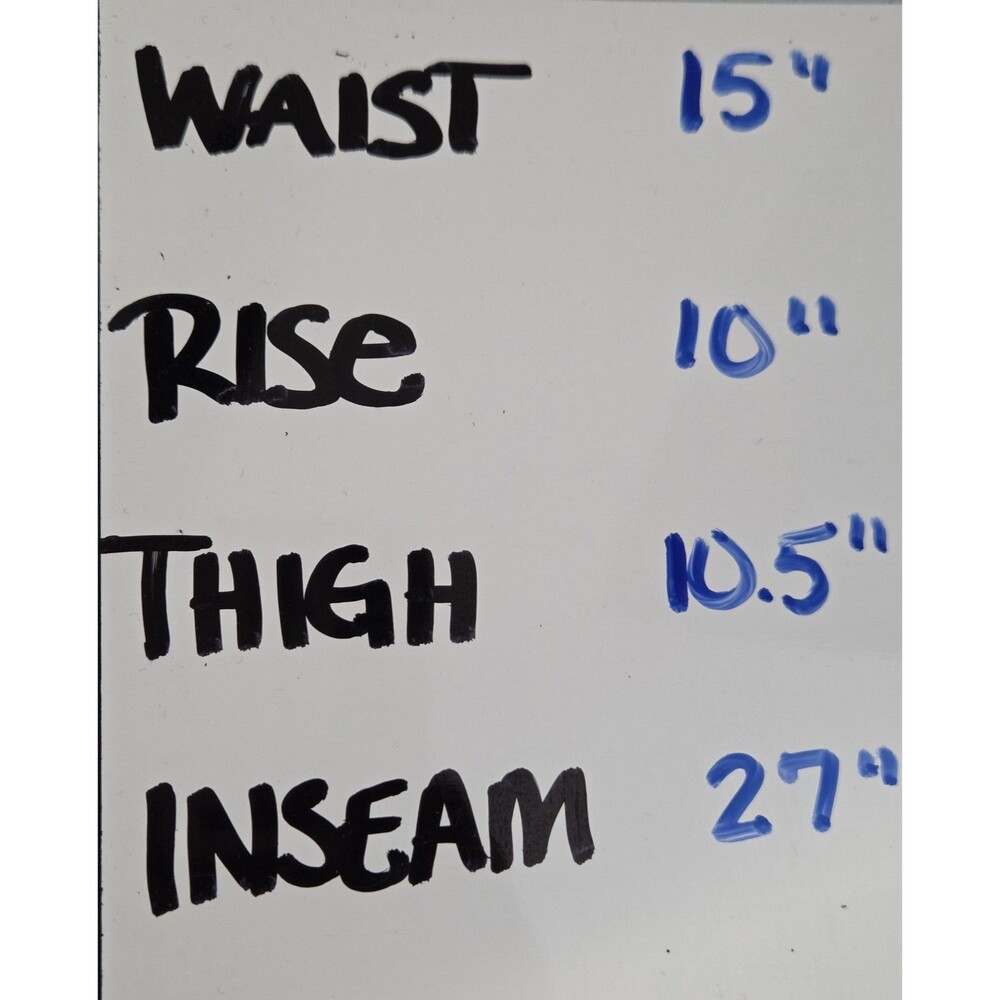 WAIST 15"
RISe 10"
THIGH 10.5"
INSEAM 27"